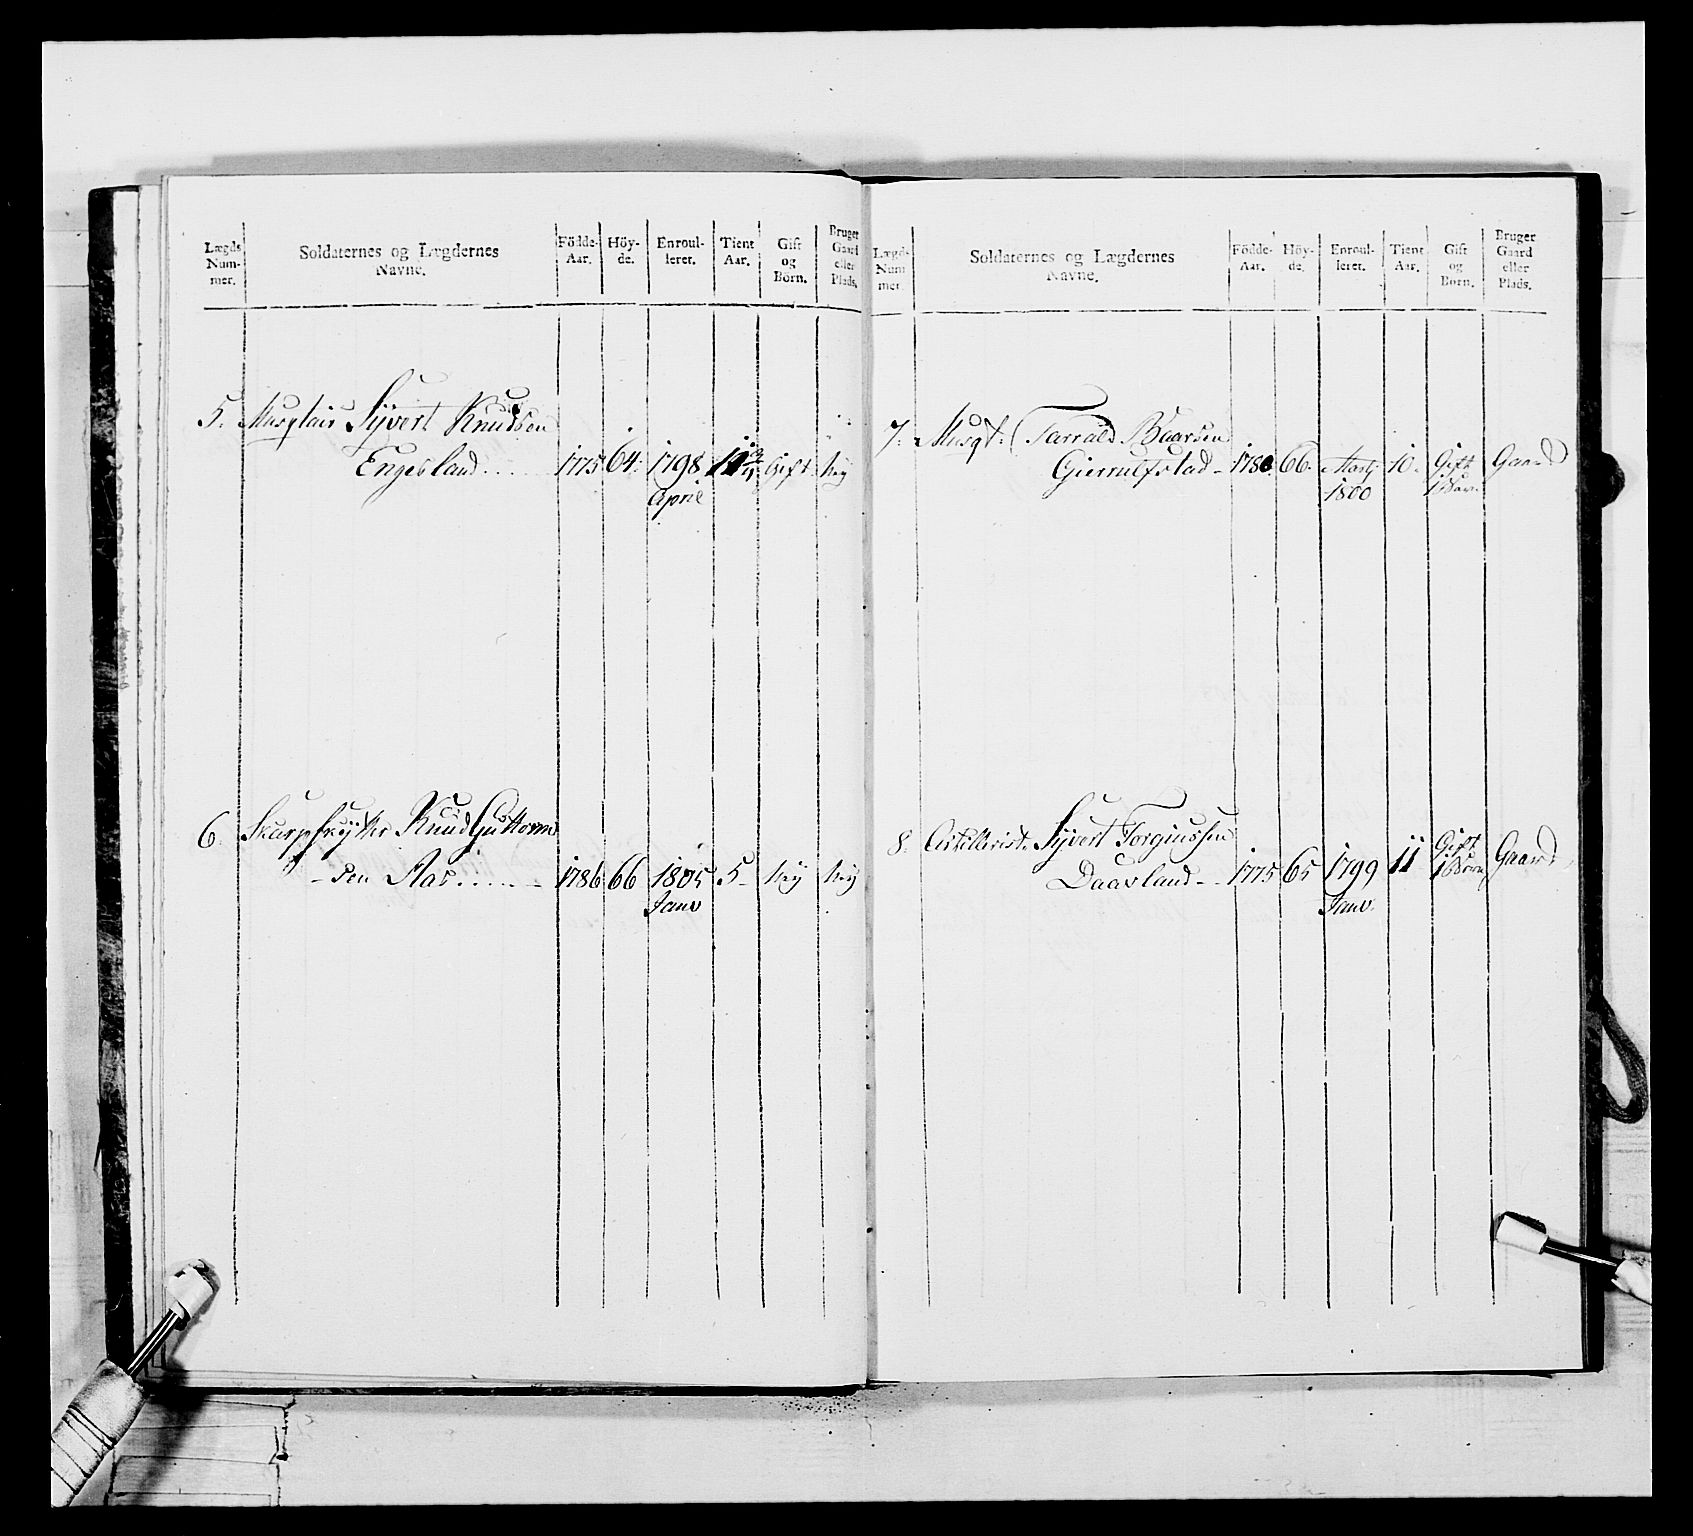 Lægds Num- mer.
Soldaternes og Lægdernes Navne.
Födde- Aar.
Höy- de.
Enroul- leret.
Tient Aar.
Gift og Börn.
Bruger Gaard eller Plads.
5. Musqtair Syvert Knudsen
Engesland..... 1775 64. 1798 11 Gift Nej
April
6. Skarpskytter Knud Guttorm
-sen Aas...... 1786 66 1805 5- Nej Nej
Janv
Lægds Num mer.
Soldaternes og Lægdernes Navne.
Födde- Aar.
Höy- de.
Enroul- leret.
Tient Aar.
Gift og Börn.
Bruger Gaard eller Plads.
7. Musqt. Tarrald Baarsen
Gierrulfstad - 1780 66. Martj 10. Gift Gaard
1800 1 Barn
8. Artillerist. Syvert Torgiussen Gift
Daasland - - 1775 65 1799 11 1 Barn Gaard
Janv.